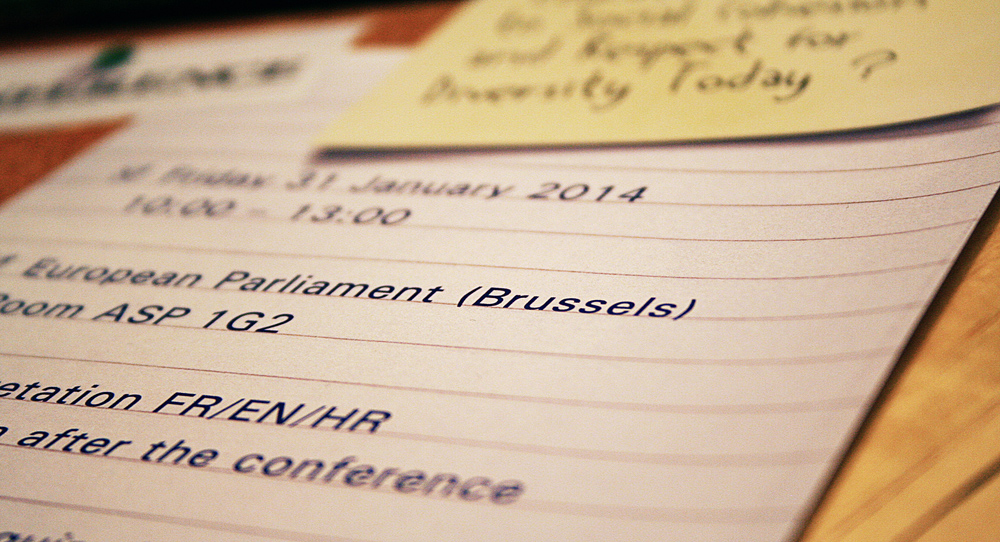 to Social Cohesion
and Respect for
Diversity Today ?
Friday 31 January 2014
10:00 - 13:00
European Parliament (Brussels)
Room ASP 1G2
etation FR/EN/HR
after the conference